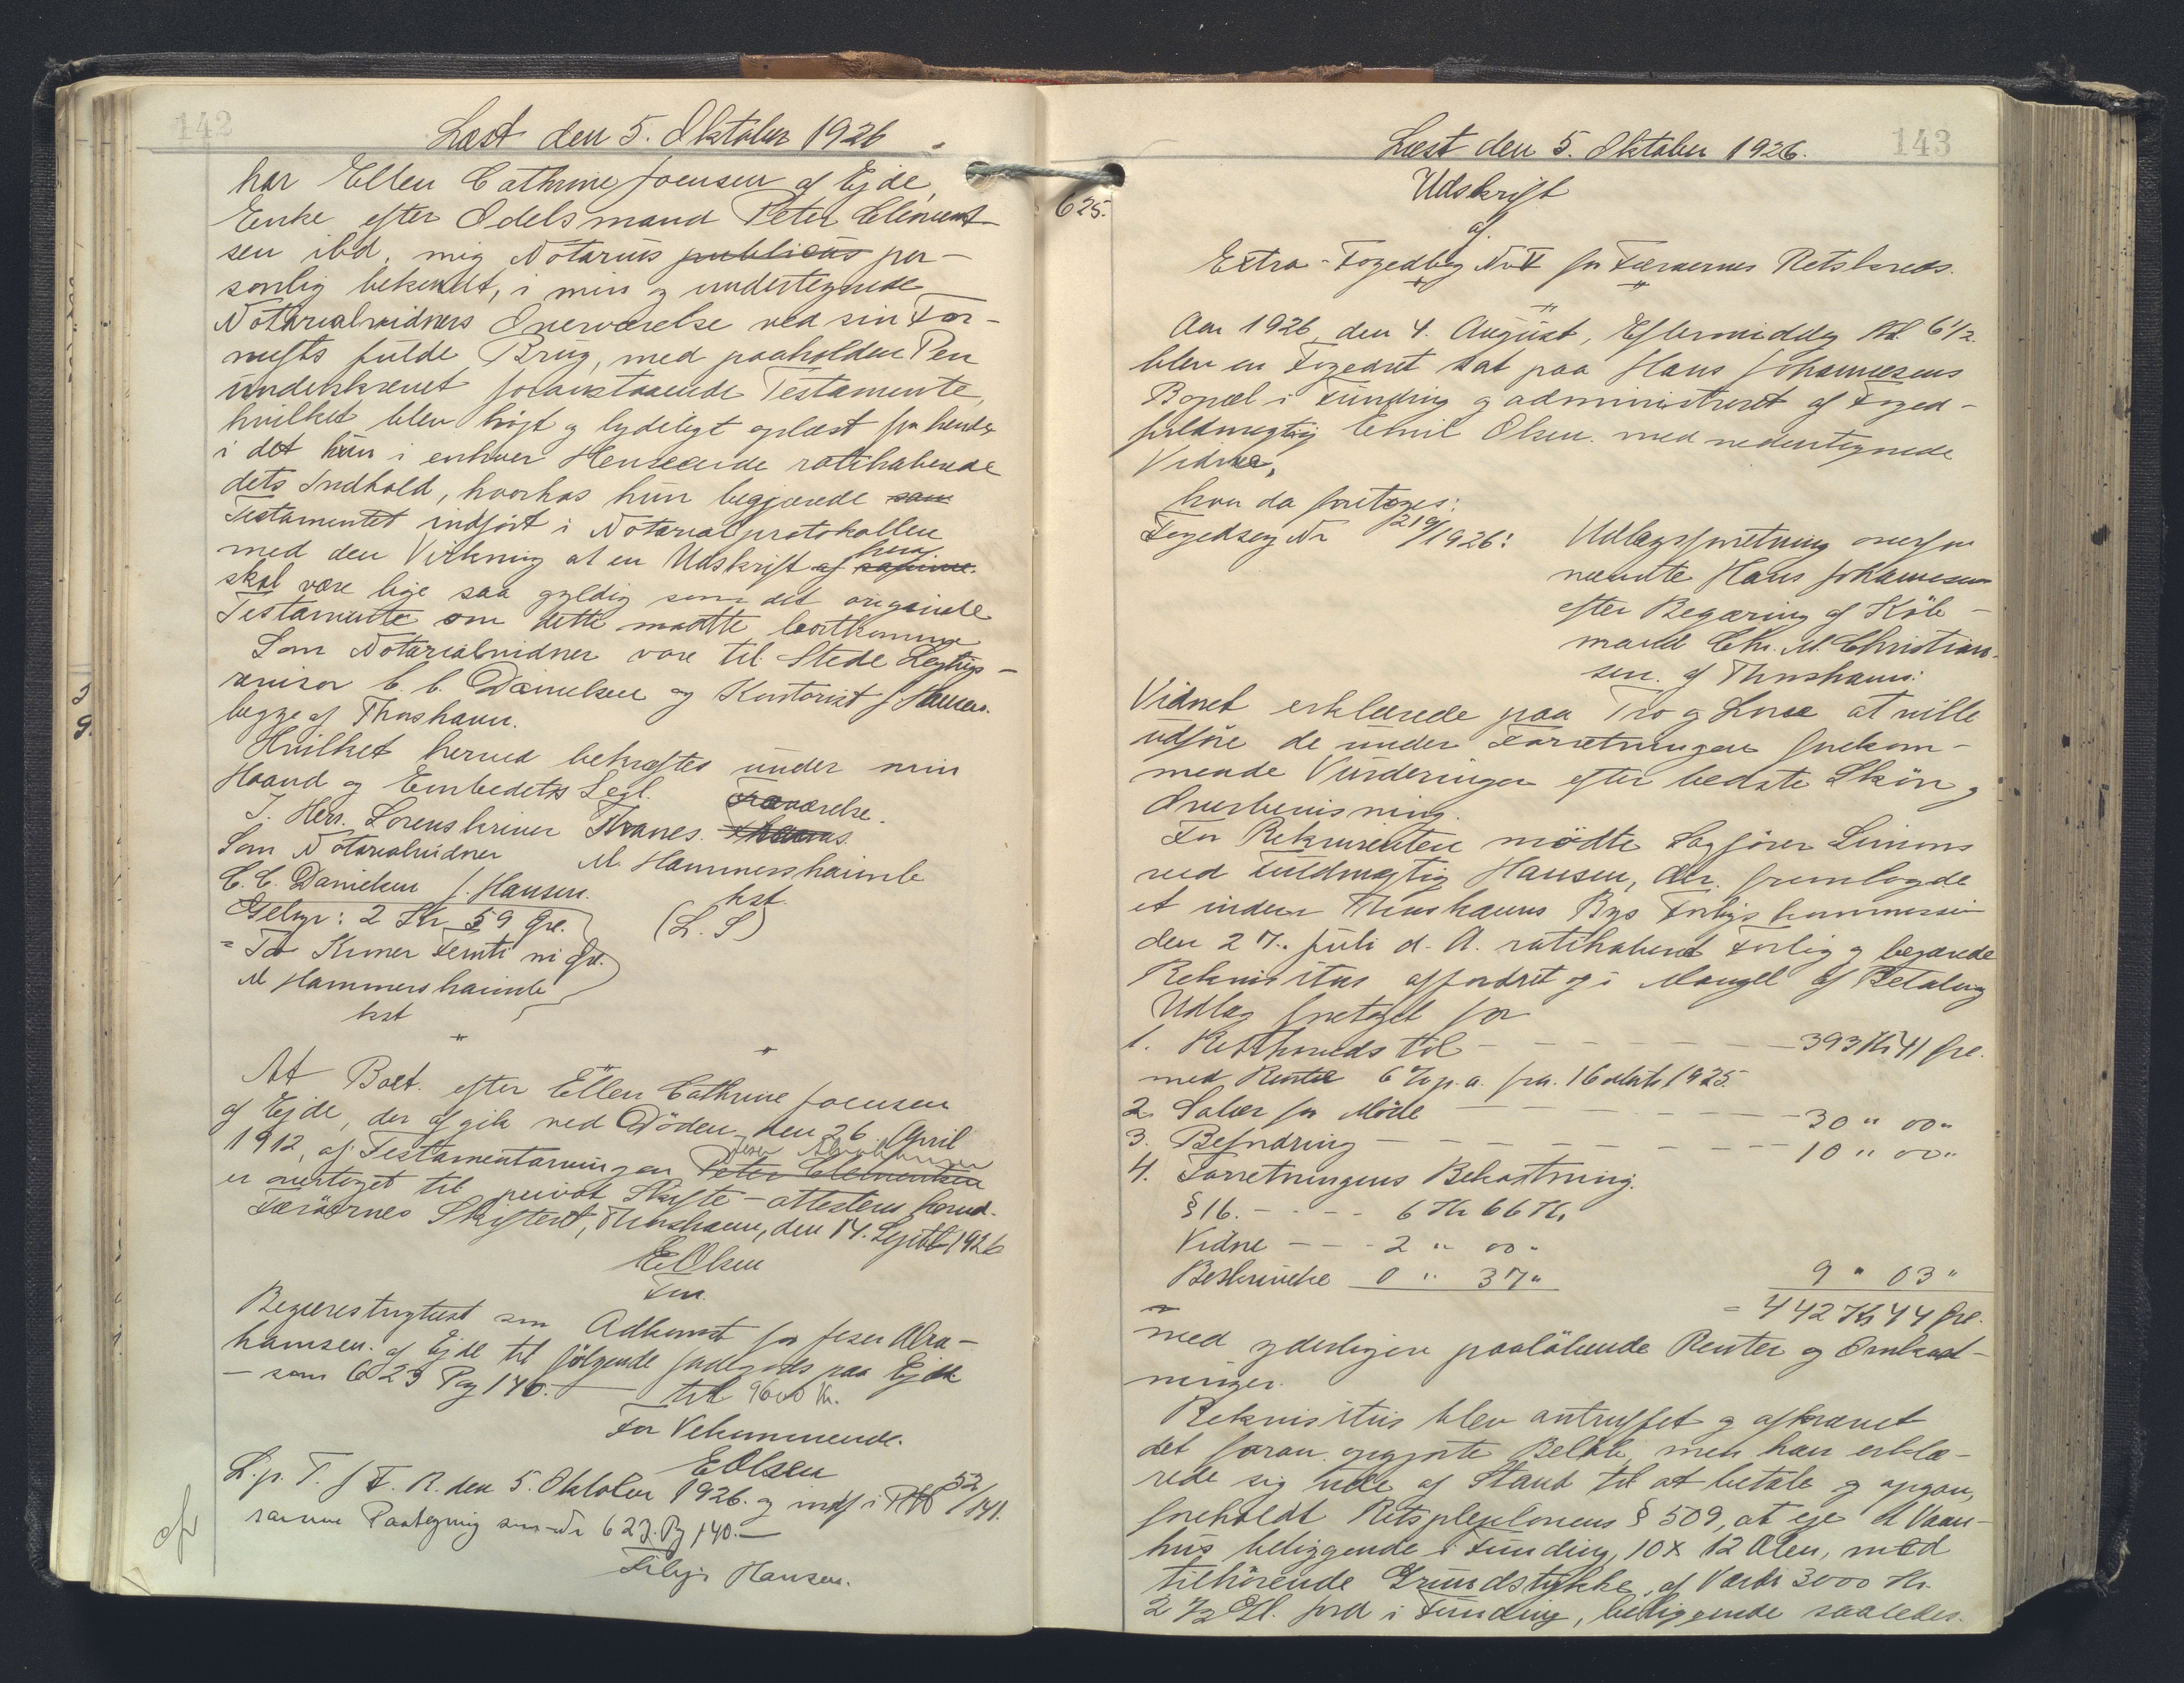 142
Læst den 5. Oktober 1926
har Ellen Cathrine Joensen af Ejde,
Enke efter Odelsmand Peter Clement-
sen ibd. mig Notarius publicus per-
sonlig bekendt, i min og undertegnede
Notarialvidners Overværelse ved sin For-
nufts fulde Brug, med paaholden Pen
underskrevet foranstaaende Testamente,
hvilket blev højt og lydeligt oplæst for hende
i det hun i enhver Henseende ratihaberede
dets Indhold, hvorhos hun begjærede sam
Testamentet indført i Notarialprotokollen
med den Virkning at en Udskrift af samme heraf
skal være lige saa gyldig som det originale
Testamente om dette maatte bortkomme
Som Notarialvidner vare til Stede Lagtings-
revisor C. C. Danielsen og Kontorist J. Hansen
begge af Thorshavn.
Hvilket herved bekræftes under min
Haand og Embedets Segl. Fraværelse.
I. Herr. Sorenskriver Thranes.
Som Notarialvidner M. Hammershaimb
C. C. Danielsen J. Hansen. kst.
Gebyr: 2 Kr 59 Øre. (L. S)
= To Kroner femti ni Øre.
M Hammershaimb
kst
At Boet efter Ellen Cathrine Joensen
af Ejde, der afgik ved Døden den 26 April
1912, af Testamentarvingen Peter Clementsen Jeser Abrahamsen
er overtaget til privat Skifte - attesteres herved.
Færøernes Skifteret, Thorshavn, den 14. Septbr 1926
EOlsen
Fm.
Begæres tinglæst som Adkomst for Jeser Abra-
hamsen. af Ejde til følgende Jordegods paa Ejde
- som 623 Pag 140. - til 9600 Kr.
For Vekommende.
EOlsen
L. p. T. f F. R. den 5. Oktober 1926. og indf i 52/141.
samme Paategning som Nr 623. Pg 140. -
Hansen.
Læst den 5. Oktober 1926. 143
625.
Udskrift
af
Extra-Fogedbog No I for Færøernes Retskreds.
Aar 1926 den 4. August, Eftermiddag Kl. 6 1/2.
blev en Fogedret sat paa Hans Johannesens
Bopæl i Funding og administreret af Foged-
fuldmægtig Emil Olsen. med nedentegnede
Vidne,
hvor da foretoges:
Fogedsag Nr 219/1926: Udlægsforretning overfor
nævnte Hans Johannesen
efter Begæring af Køb-
mand Chr. M. Christian-
sen. af Thorshavn:
Vidnet erklærede paa Tro og Love at ville
udføre de under Forretningen forekom-
mende Vurderinger efter bedste Skøn og
Overbevisning.
For Rekvirenten mødte Sagfører Simons
ved Fuldmægtig Hansen, der. fremlagde
et inden Thorshavns Bys Forligskommission
den 27. Juli d. A. ratihaberet Forlig og begærede
Rekvisitus affordret og i Mangel af Betaling
Udlæg foretaget for
1. Resthovedstol - - - 393 Kr 41 Øre.
med Renter 6% p. a. fra. 16 Marts 1925.
2. Salær for Møde - - - 30 " 00 "
3. Befordring - - - 10 " 00 "
4. Forretningens Bekostning.
§16. - - - 6 Kr 66 Kr
Vidne - - - 2 " 00 "
Beskrivelse 0 " 37 " 9 " 03 "
= 442 Kr 44 Øre.
med yderligere paaløbende Renter og Omkost-
ninger.
Rekvisitus blev antruffet og afkrævet
det foran opgjorte Beløb, men han erklæ-
rede sig ude af Stand til at betale og opgav,
foreholdt Retsplejelovens § 509, at eje et Vaan-
hus beliggende i Funding, 10 x 12 Alen, med
tilhørende Grundstykke, af Værdi 3000 Kr.
2 1/2 Gl. Jord i Funding, beliggende saaledes.